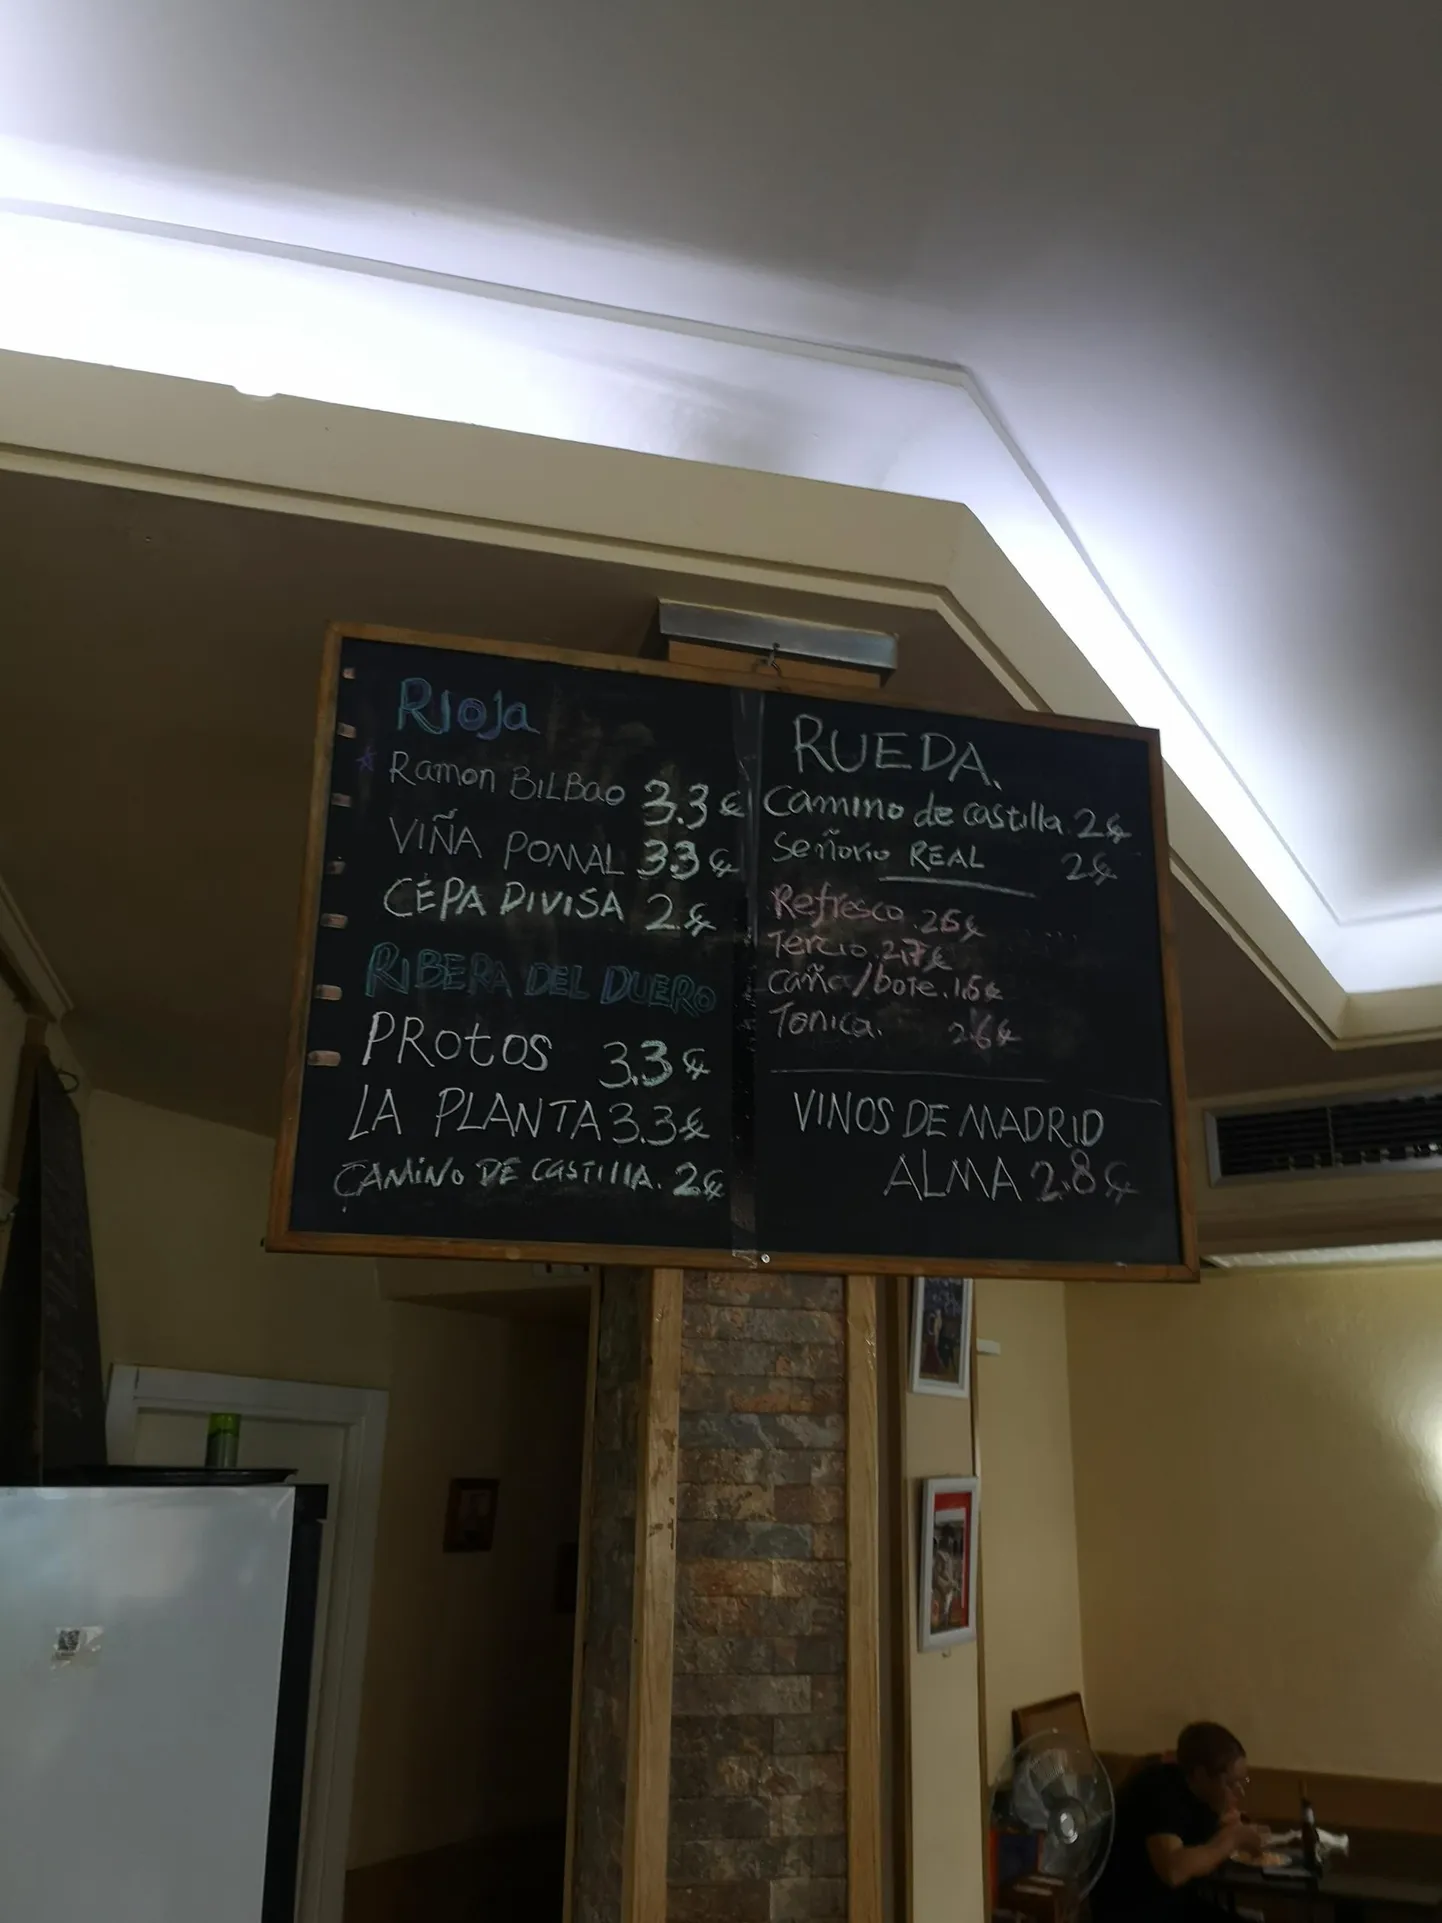 Rioja
Ramon BILBao 3.3 €
VIÑA POMAL 3.3 €
CEPA DIVISA 2. €
RIBERA DEL DUERO
PRotos 3.3 €
LA PLANTA 3.3 €
CAMiNo DE CASTILLA. 2 €
RUEDA.
Camino de castilla. 2 €
Señorio REAL 2 €
Refresco. 2.6 €
Tercio. 2.7 €
Caña/bote. 1.6 €
Tonica. 2.6 €
VINOS DE MADRID
ALMA 2.8 €